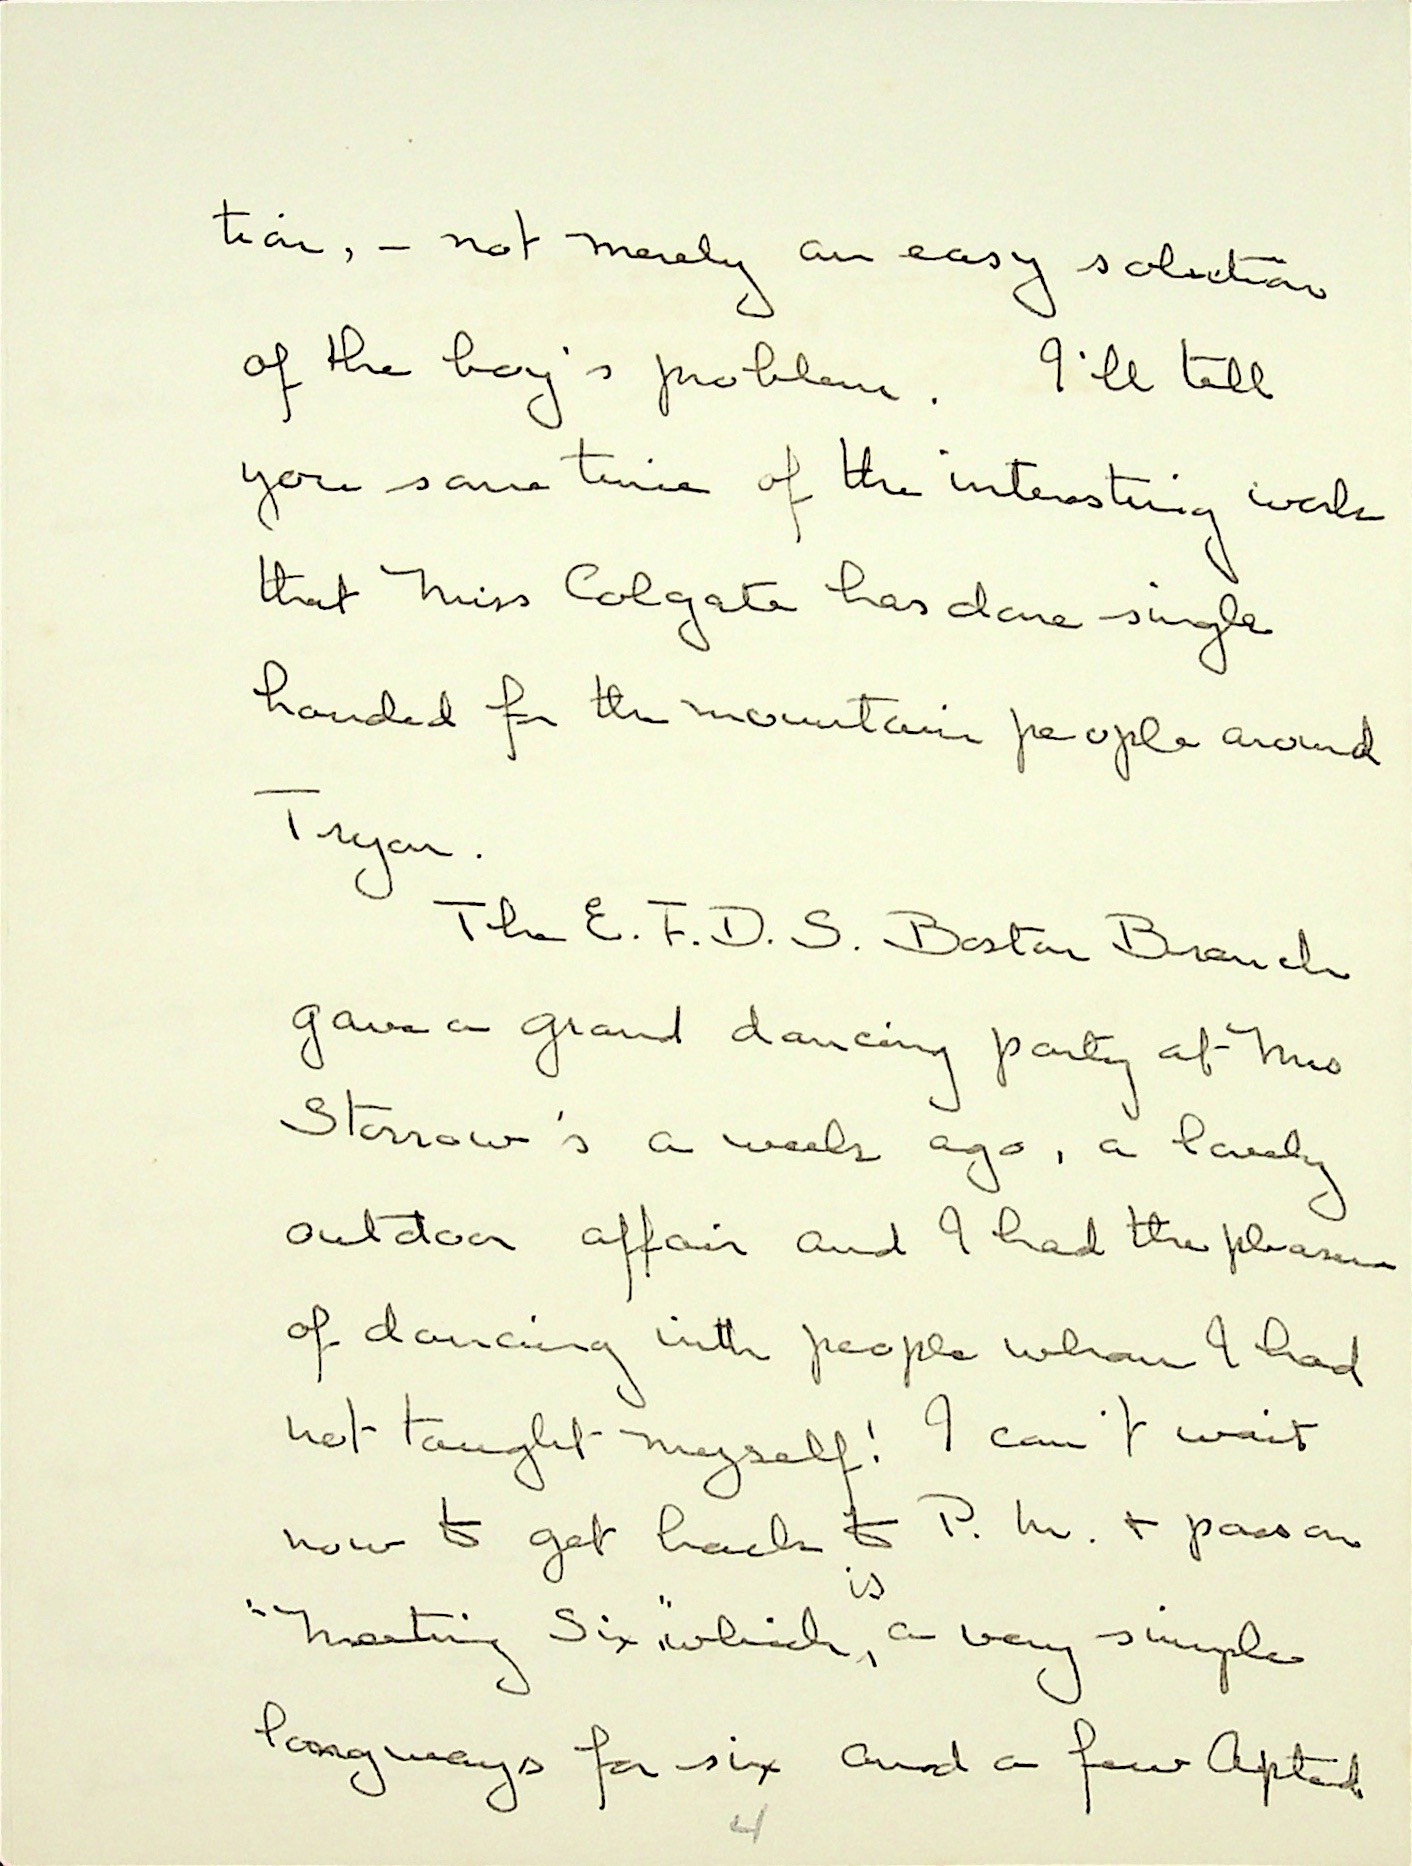 tion, - not merely an easy solution
of the boy's problem. I'll tell
you some time of the interesting work
that Miss Colgate has done single
handed for the mountain people around
Tryon.
The E.F.D.S. Boston Branch
gave a grand dancing party at Mrs
Storrow's a week ago, a lovely
outdoor affair and I had the pleasure
of dancing with people whom I had
not taught myself! I can't wait
now to get back to P.M. + pass on
is
"Meeting Six", which ‸ a very simple
longways for six and a few Apted
4